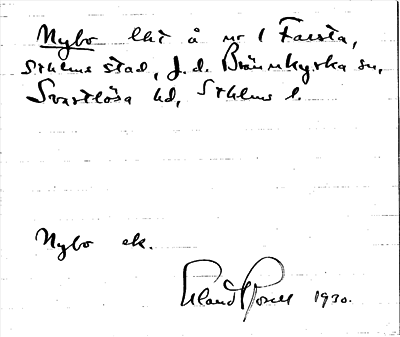 Nybo lht å nr 1 Farsta,
Sthlms stad, f. d. Brännkyrka sn,
Svartlösa hd, Sthlms l.
Nybo ek.
Erland Rosell 1930.